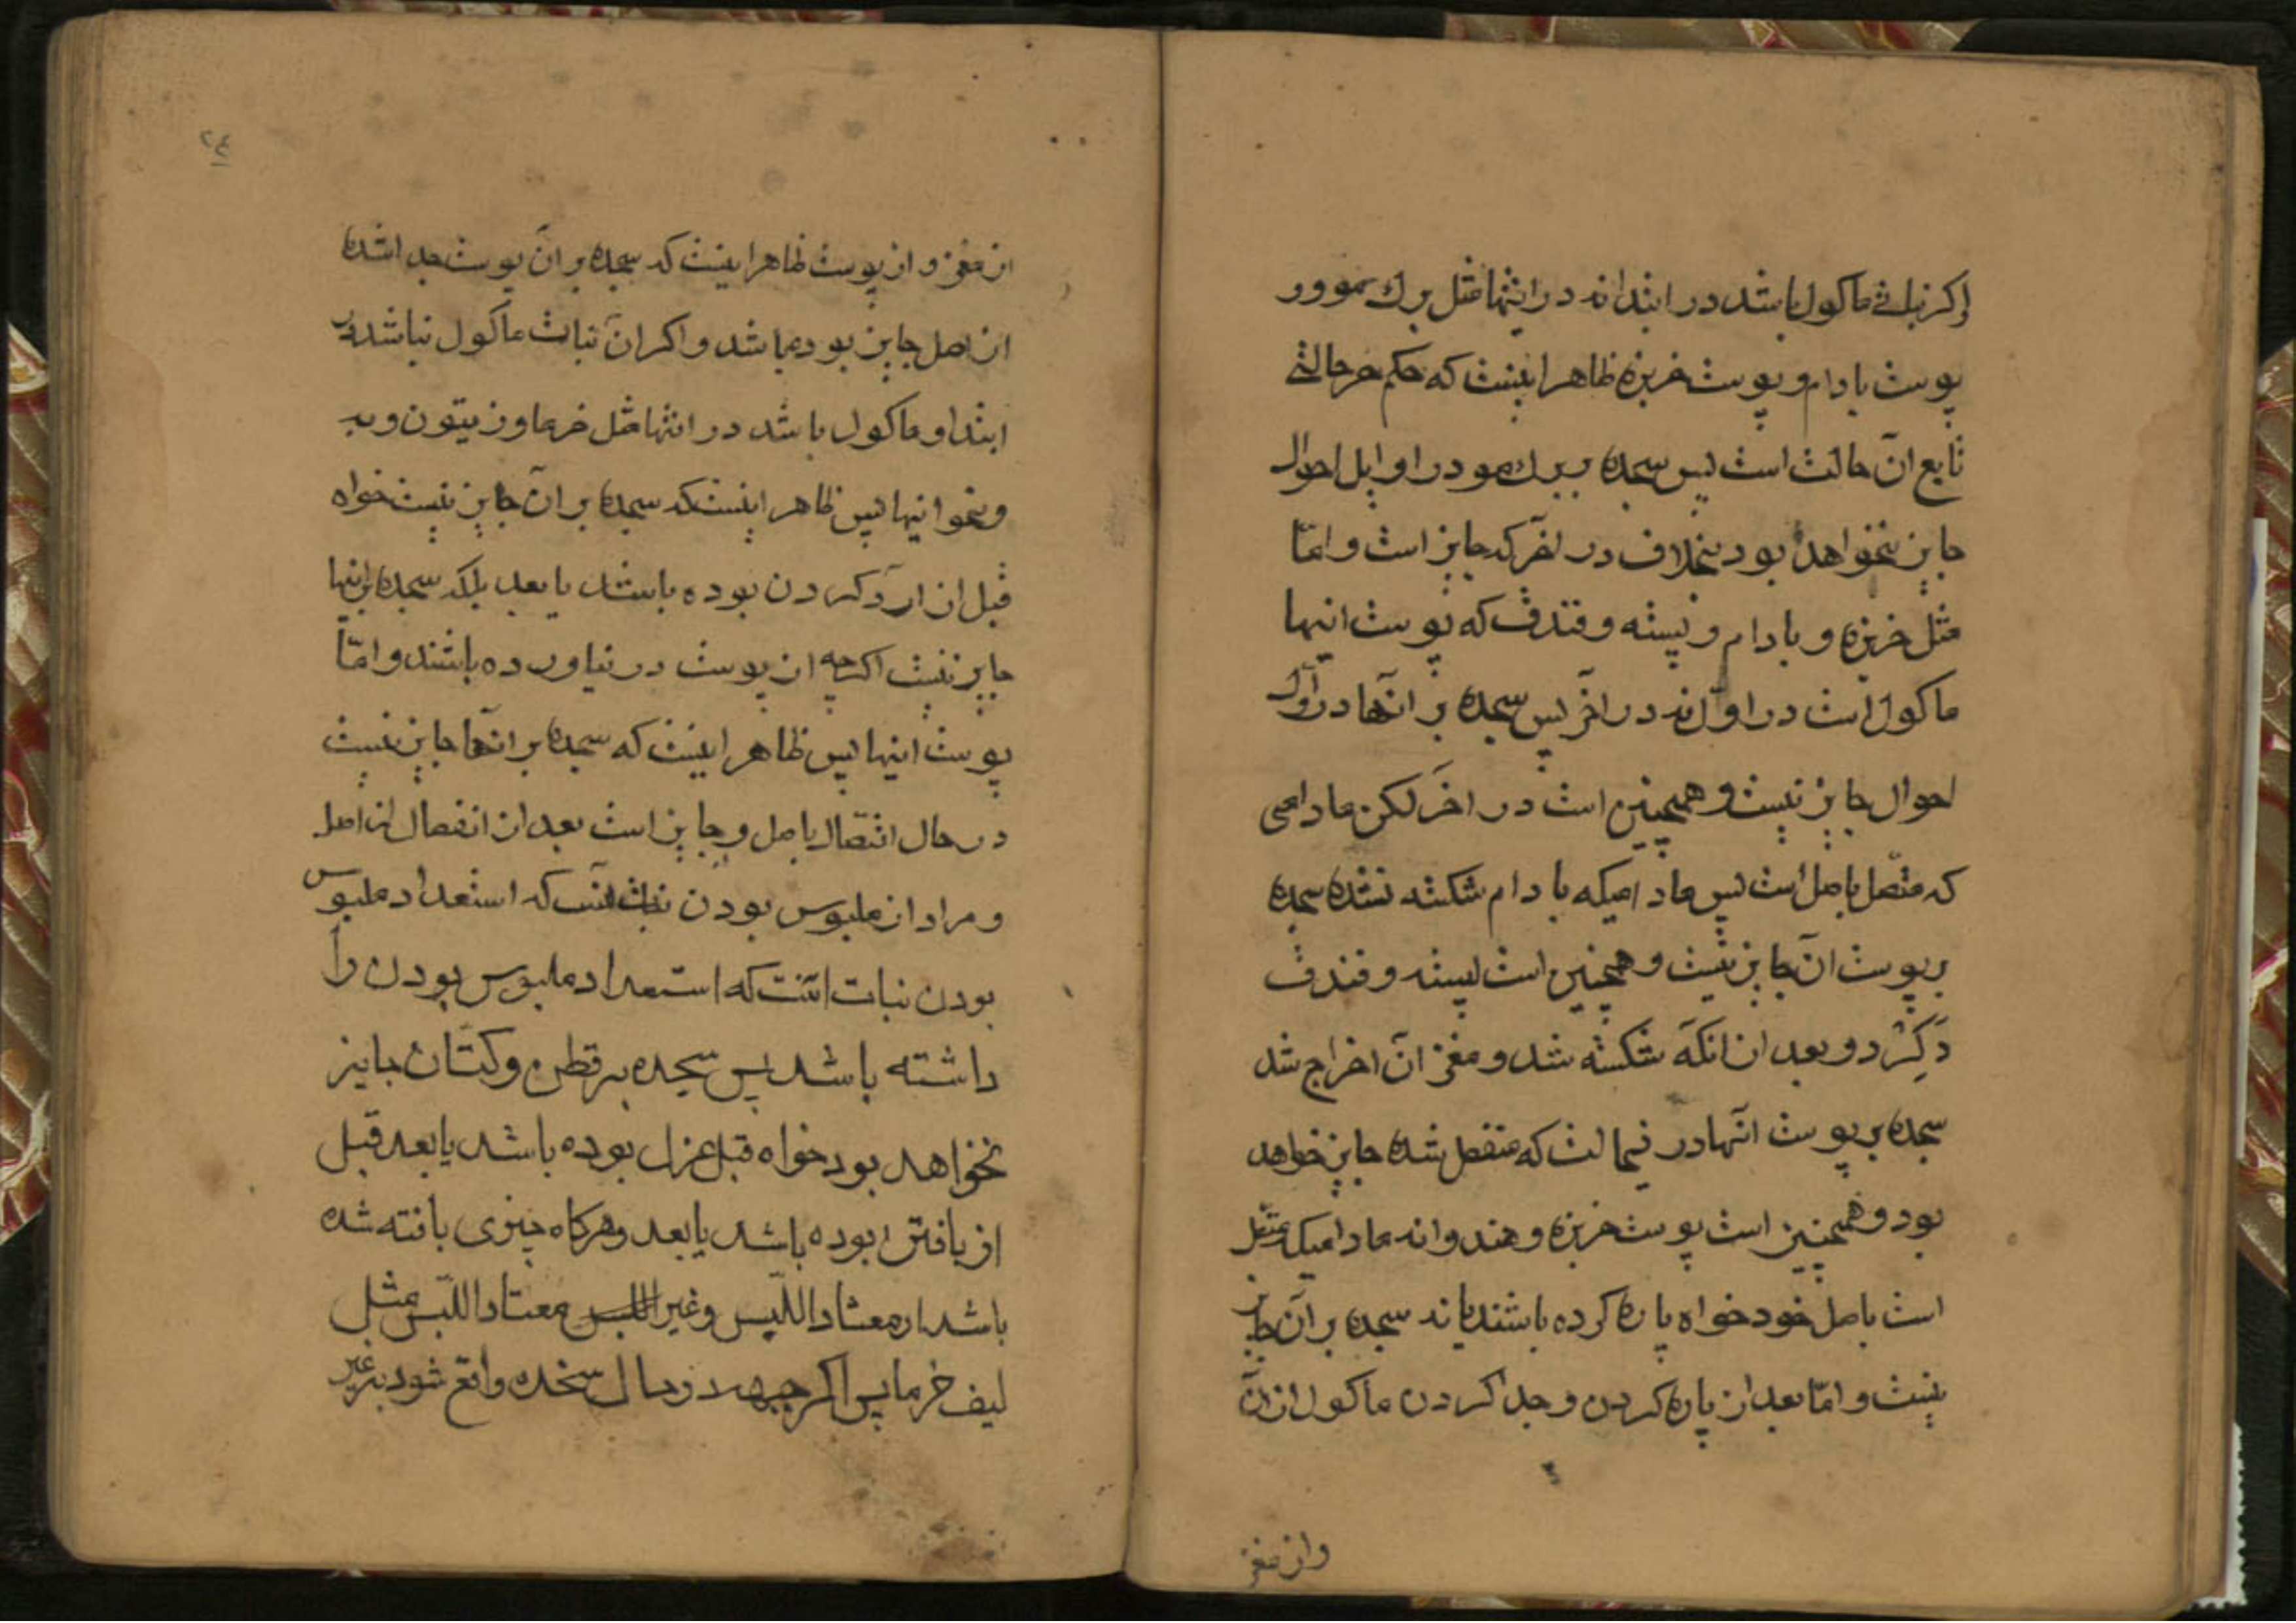 اکر نباتے ماکول باشد در ابتدا نه در انتها مثل برك مو و در
پوست بادام و پوست خربزه ظاهر اینست که حکم هر حالتے
تابع ان حالت است پس سجده بر برك مو در اوایل احوال
جایز نخواهد بود بخلاف در اخر که جایز است و امّا
مثل خربزه و بادام و پسته و فندق که پوست اینها
ماکول است در اوّل نه در اخر پس سجده بر انها در اوّل
احوال جایز نیست و همچنین است در اخر لکن مادامی
که متصل باصل است پس مادامیکه بادام شکسته نشده سجده
بر پوست ان جایز نیست و همچنین است پسته و فندق
و کردو و بعد از انکه شکسته شد و مغز ان اخراج شد
سجده بر پوست انها در نیحالت که منفصل شده جایز خواهد
بود و همچنین است پوست خربزه و هندوانه مادامیکه متصل
است باصل خود خواه پاره کرده باشند یا نه سجده بر ان جایز
نیست و امّا بعد از پاره کردن و جدا کردن ماکول از ان
و از مغز
۲۴
از مغز و از پوست ظاهر اینست که سجده بر ان پوست جدا شده
از اصل جایز بوده باشد و اکر ان نبات ماکول نباشد در
ابتدا و ماکول باشد در انتها مثل خرما و زیتون و به
و نحو اینها پس ظاهر اینست که سجده بر ان جایز نیست خواه
قبل از ارد کردن بوده باشد یا بعد بلکه سجده بر اینها
جایز نیست اکرچه از پوست در نیاورده باشند و امّا
پوست اینها پس ظاهر اینست که سجده بر انها جایز نیست
در حال اتصال باصل و جایز است بعد از انفصال از اصل
و مراد از ملبوس بودن نبات انست که استعداد ملبوس
بودن نبات انست که استعداد ملبوس بودن را
داشته باشد پس سجده بر قطن و کتان جایز
نخواهد بود خواه قبل غزل بوده باشد یا بعد قبل
از بافتن بوده باشد یا بعد و هرکاه چیزی بافته شده
باشد از معتاد اللّبس و غیر اللبس معتاد اللّبس مثل
لیف خرما پس اکر جبهه در حال سجده واقع شود بر غیر